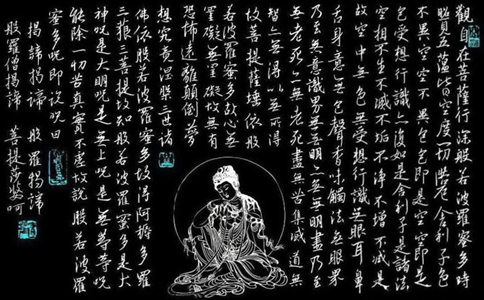 觀自在菩薩行深般若波羅蜜多時
照見五蘊皆空度一切苦厄舍利子色
不異空空不異色色即是空空即是
色受想行識亦復如是舍利子是諸法
空相不生不滅不垢不淨不增不減是
故空中無色無受想行識無眼耳鼻
舌身意無色聲香味觸法無眼界
乃至無意識界無無明亦無無明盡乃至
無老死亦無老死盡無苦集滅道無
智亦無得以無所得
故菩提薩埵依般
若波羅蜜多故心無
罣礙無罣礙故無有
恐怖遠離顛倒夢
想究竟涅槃三世諸
佛依般若波羅蜜多故得阿耨多羅
三藐三菩提故知般若波羅蜜多是大
神咒是大明咒是無上咒是無等等咒
能除一切苦真實不虛故說般若波羅
蜜多咒即說咒曰
揭諦揭諦 般羅揭諦
般羅僧揭諦 菩提莎婆呵